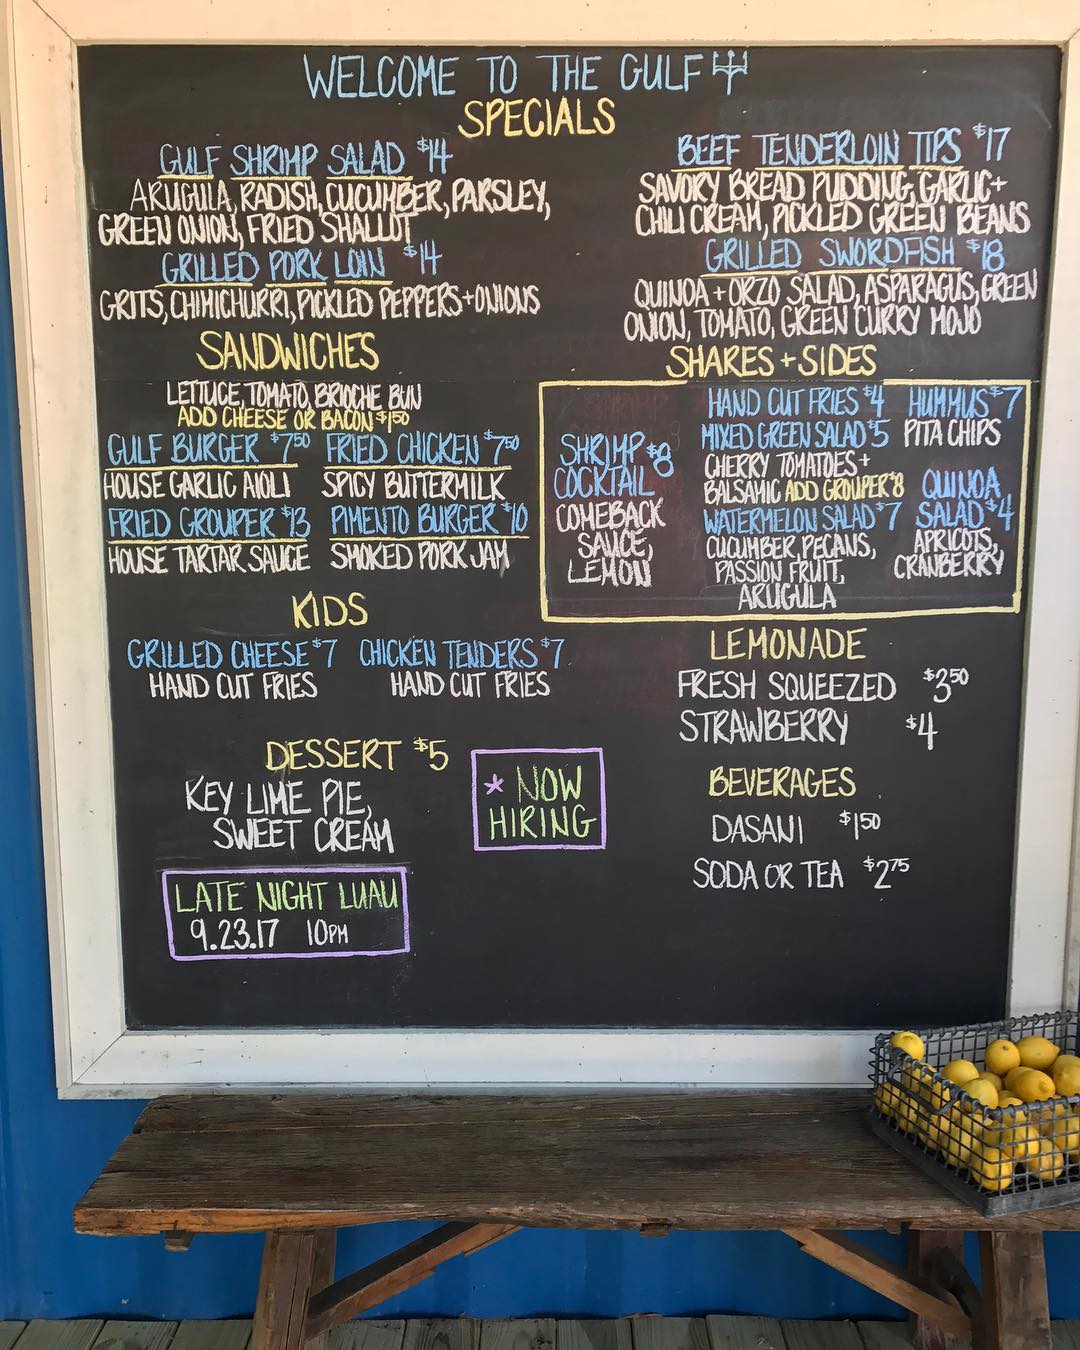 WELCOME TO THE GULF
SPECIALS
GULF SHRIMP SALAD $14
ARUGULA, RADISH, CUCUMBER, PARSLEY,
GREEN ONION, FRIED SHALLOT
GRILLED PORK LOIN $14
GRITS, CHIMICHURRI, PICKLED PEPPERS + ONIONS
BEEF TENDERLOIN TIPS $17
SAVORY BREAD PUDDING, GARLIC +
CHILI CREAM, PICKLED GREEN BEANS
GRILLED SWORDFISH $18
QUINOA + ORZO SALAD, ASPARAGUS, GREEN
ONION, TOMATO, GREEN CURRY MOJO
SANDWICHES
LETTUCE, TOMATO, BRIOCHE BUN
ADD CHEESE OR BACON $1.50
GULF BURGER $7.50
HOUSE GARLIC AIOLI
FRIED CHICKEN $7.50
SPICY BUTTERMILK
FRIED GROUPER $13
HOUSE TARTAR SAUCE
PIMENTO BURGER $10
SMOKED PORK JAM
SHARES + SIDES
SHRIMP $8
COCKTAIL
COMEBACK
SAUCE,
LEMON
HAND CUT FRIES $4
MIXED GREEN SALAD $5
CHERRY TOMATOES +
BALSAMIC ADD GROUPER $8
WATERMELON SALAD $7
CUCUMBER, PECANS,
PASSION FRUIT,
ARUGULA
HUMMUS $7
PITA CHIPS
QUINOA
SALAD $4
APRICOTS,
CRANBERRY
KIDS
GRILLED CHEESE $7
HAND CUT FRIES
CHICKEN TENDERS $7
HAND CUT FRIES
LEMONADE
FRESH SQUEEZED $3.50
STRAWBERRY $4
DESSERT $5
KEY LIME PIE,
SWEET CREAM
* NOW
HIRING
BEVERAGES
DASANI $1.50
SODA OR TEA $2.75
LATE NIGHT LUAU
9.23.17 10PM